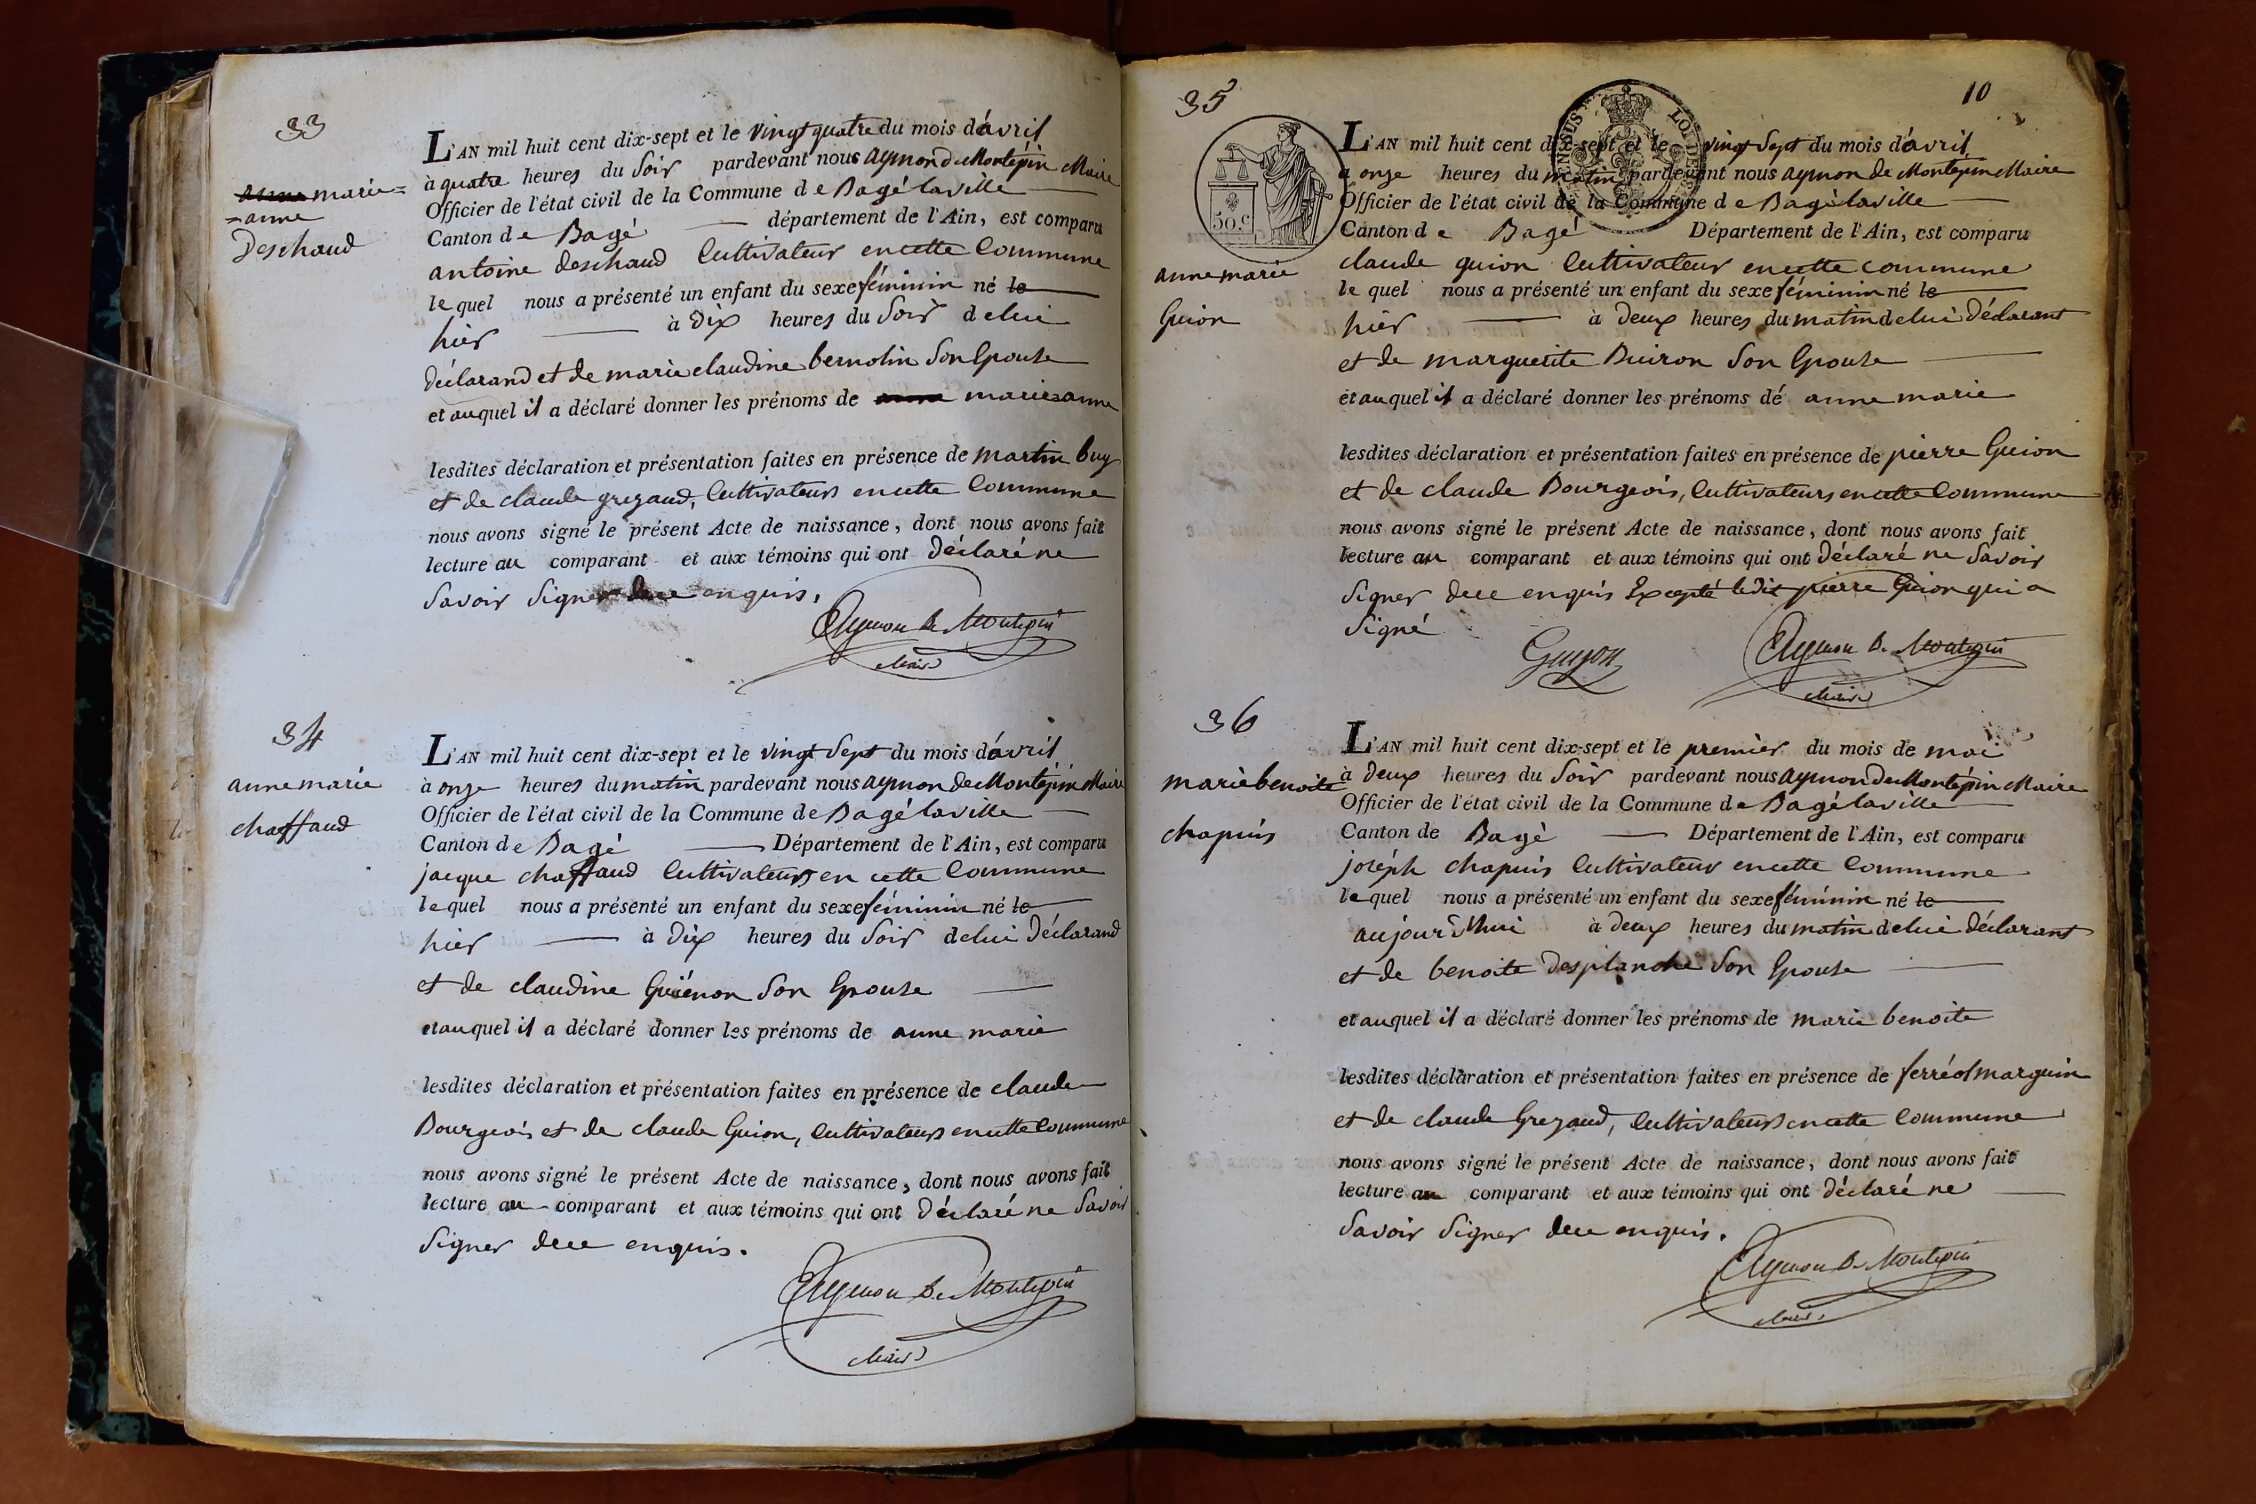 33
anne marie=
=anne
Deschaud
L'AN mil huit cent dix-sept et le vingt quatre du mois d'avril
à quatre heures du Soir pardevant nous aymon de Montépin Maire
Officier de l'état civil de la Commune de Bagé laville
Canton de Bagé département de l'Ain, est comparu
antoine deschaud Cultivateur en cette Commune
le quel nous a présenté un enfant du sexe féminin né le
hier à Dix heures du Soir de lui
déclarand et de marie claudine bernolin Son Epouse
et auquel il a déclaré donner les prénoms de anne marie=anne
lesdites déclaration et présentation faites en présence de martin buy
et de claude grezaud, Cultivateurs en cette Commune
nous avons signé le présent Acte de naissance, dont nous avons fait
lecture au comparant et aux témoins qui ont déclaré ne
Savoir Signer de ce enquis.
Aymon De Montepin
Maire
34
anne marie
chaffaud
L'AN mil huit cent dix-sept et le vingt Sept du mois d'avril
à onze heures du matin pardevant nous aymon de Montépin Maire
Officier de l'état civil de la Commune de Bagé laville
Canton de Bagé Département de l'Ain, est comparu
jacque chaffaud Cultivateurs en cette Commune
le quel nous a présenté un enfant du sexe féminin né le
hier à Dix heures du Soir de lui Déclarand
et de claudine Guiénon Son Epouse
et auquel il a déclaré donner les prénoms de anne marie
lesdites déclaration et présentation faites en présence de claude
Bourgeois et de claude Guion, Cultivateurs en cette Commune
nous avons signé le présent Acte de naissance, dont nous avons fait
lecture au comparant et aux témoins qui ont Déclaré ne Savoir
Signer de ce enquis.
Aymon De Montepin
Maire
35
10
50.c
anne marie
Guion
L'AN mil huit cent dix-sept et le vingt Sept du mois d'avril
à onze heures du matin pardevant nous aymon de Montépin Maire
Officier de l'état civil de la Commune de Bagé laville
Canton de Bagé Département de l'Ain, est comparu
claude guion Cultivateur en cette commune
le quel nous a présenté un enfant du sexe féminin né le
hier à Deux heures du matin de lui Déclarant
et de marguerite Buiron Son Epouse
et auquel il a déclaré donner les prénoms dé anne marie
lesdites déclaration et présentation faites en présence de pierre Guion
et de claude Bourgeois, Cultivateurs en cette Commune
nous avons signé le présent Acte de naissance, dont nous avons fait
lecture au comparant et aux témoins qui ont Déclaré ne Savoir
Signer de ce enquis Excepté ledit pierre Guion qui a
Signé
Guyon
Aymon De Montepin
Maire
36
marie benoite
chapuis
L'AN mil huit cent dix-sept et le premier du mois de mai
à Deux heures du Soir pardevant nous aymon de Montépin Maire
Officier de l'état civil de la Commune de Bagé laville
Canton de Bagé Département de l'Ain, est comparu
joséph chapuis Cultivateur en cette Commune
le quel nous a présenté un enfant du sexe féminin né le
aujourd'hui à Deux heures du matin de lui déclarant
et de benoite desplanche Son Epouse
et auquel il a déclaré donner les prénoms de marie benoite
lesdites déclaration et présentation faites en présence de ferréol marguin
et de claude Grezaud, Cultivateurs en cette Commune
nous avons signé le présent Acte de naissance, dont nous avons fait
lecture au comparant et aux témoins qui ont déclaré ne
Savoir Signer de ce enquis.
Aymon De Montepin
Maire